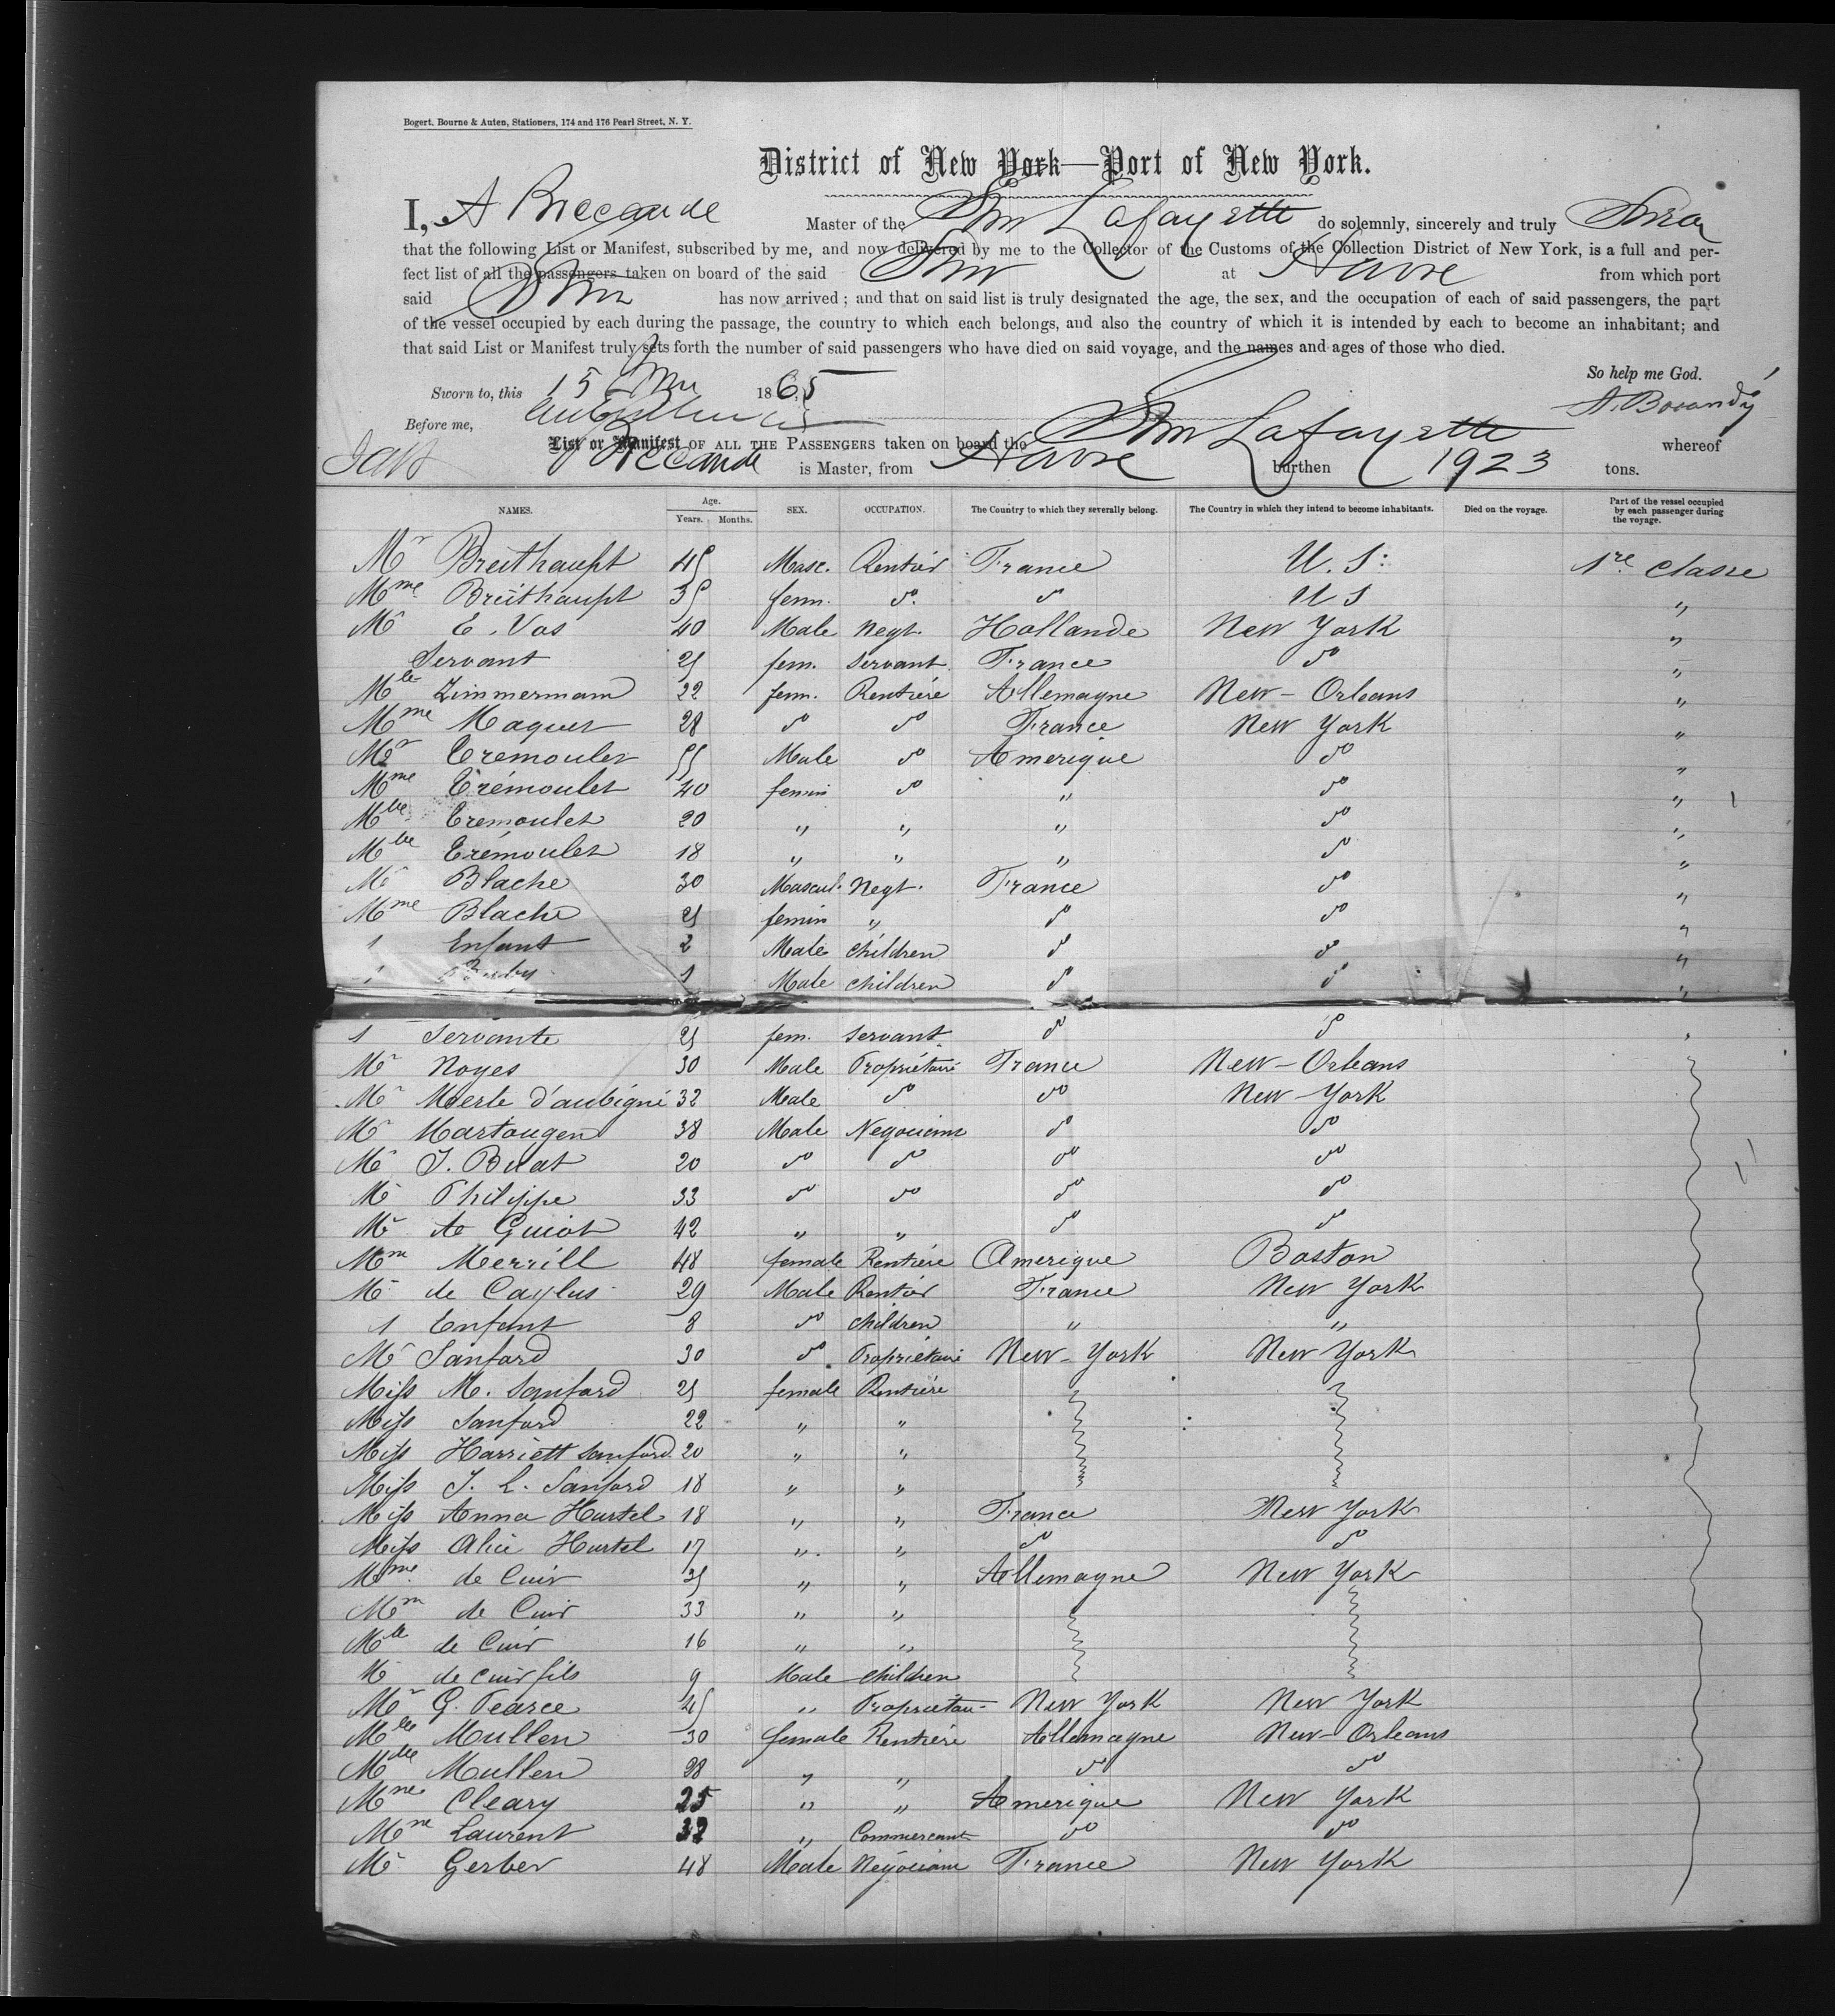 Bogert, Bourne & Auten, Stationers, 174 and 176 Pearl Street, N. Y.
District of New York—Port of New York.
I, A Bocande Master of the Stm Lafayette do solemnly, sincerely and truly Swear
that the following List or Manifest, subscribed by me, and now delivered by me to the Collector of the Customs of the Collection District of New York, is a full and per-
fect list of all the passengers taken on board of the said Stmr at Havre from which port
said Stmr has now arrived; and that on said list is truly designated the age, the sex, and the occupation of each of said passengers, the part
of the vessel occupied by each during the passage, the country to which each belongs, and also the country of which it is intended by each to become an inhabitant; and
that said List or Manifest truly sets forth the number of said passengers who have died on said voyage, and the names and ages of those who died.
So help me God.
Sworn to, this 15 1865
A. Bocandé
Before me,
List or Manifest OF ALL THE PASSENGERS taken on board the Stm Lafayette whereof
Bocande is Master, from Havre burthen 1923 tons.
NAMES. Age. Years. Months. SEX. OCCUPATION. The Country to which they severally belong. The Country in which they intend to become inhabitants. Died on the voyage. Part of the vessel occupied by each passenger during the voyage.
Mr Breithaupt 45 Masc. Rentier France U. S. 1re classe
Mme Breithaupt 35 fem. do do U S "
Mr E. Vos 40 Male Negt. Hollande New York "
Servant 25 fem. Servant France do "
Mlle Zimmermam 22 fem. Rentière Allemagne New-Orleans "
Mme Maquet 28 do do France New York "
Mr Tremoulet 55 Male do Amerique do "
Mme Trémoulet 40 femin do " do "
Mlle Tremoulet 20 " " " do "
Mlle Trémoulet 18 " " " do "
Mr Blache 30 Mascul. Negt. France do "
Mme Blache 25 femin " do do "
1 Enfant 2 Male children do do "
1 Baby 1 Male children do do "
1 Servante 25 fem. Servant do do "
Mr Noyes 30 Male Propriétaire France New-Orleans
Mr Merle d'aubigné 32 Male do do New-York
Mr Martougen 38 Male Negociant do do
Mr J. Buat 20 do do do do
Mr Philippe 33 do do do do
Mr A Guiot 42 " " do do
Mm Merrill 48 female Rentière Amerique Boston
Mr de Caylus 29 Male Rentier France New York
1 Enfant 8 do children " "
Mr Sanford 30 do Propriétaire New-York New York
Miss M. Sanford 25 female Rentière
Miss Sanford 22 " "
Miss Harriett Sanford 20 " "
Miss J. L. Sanford 18 " "
Miss Anna Hurtel 18 " " France New York
Miss Alice Hurtel 17 " " do do
Mme de Cuir 25 " " Allemagne New York
Mm de Cuir 33 " "
Mlle de Cuir 16 " "
Mr de Cuir fils 9 Male children
Mr G. Pearce 45 " Propriétaire New York New York
Mlle Mullen 30 female Rentière Allemagne New-Orleans
Mlle Mullen 28 " " do do
Mme Cleary 25 " " Amerique New York
Mme Laurent 32 " Commercant do do
Mr Gerber 48 Male Negociant France New York